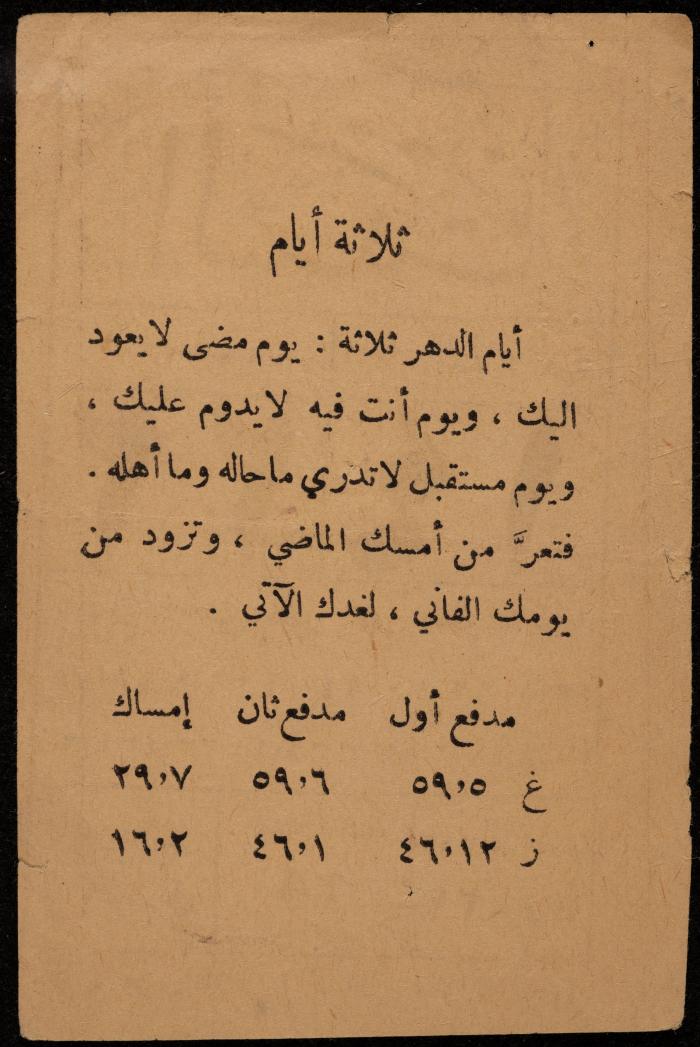 ثلاثة أيام
أيام الدهر ثلاثة : يوم مضى لا يعود
اليك ، ويوم أنت فيه لا يدوم عليك ،
ويوم مستقبل لا تدري ما حاله وما أهله .
فتعرَّ من أمسك الماضي ، وتزود من
يومك الفاني ، لغدك الآتي .
مدفع أول مدفع ثان إمساك
غ ٥٩،٥ ٥٩،٦ ٢٩،٧
ز ٤٦،١٢ ٤٦،١ ١٦،٢